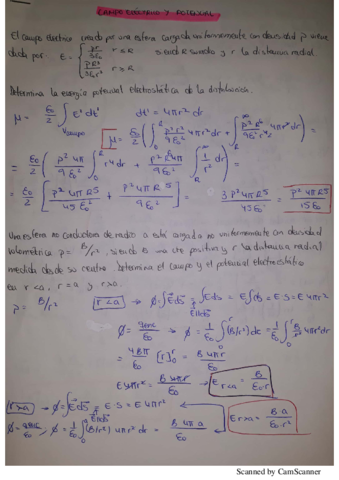 CAMPO ELÉCTRICO Y POTENCIAL
El campo eléctrico creado por una esfera cargada uniformemente con densidad ρ viene
dado por E = { ρr/3ε₀ r ≤ R siendo R su radio y r la distancia radial.
ρR³/3ε₀r² r ≥ R
Determina la energía potencial electrostática de la distribución.
μ = ε₀/2 ∫ E² dτ dτ = 4πr² dr
μ = ε₀/2 ( ∫₀ᴿ ρ²r²/9ε₀² 4πr² dr + ∫ᴿ^∞ ρ²R⁶/9ε₀²r⁴ 4πr² dr ) =
= ε₀/2 ( ρ² 4π/9ε₀² ∫₀ᴿ r⁴ dr + ρ²R⁶4π/9ε₀² ∫ᴿ^∞ 1/r² dr ) =
= ε₀/2 [ ρ² 4π R⁵/45 ε₀² + ρ² 4π R⁵/9ε₀² ] = 3ρ² 4π R⁵/45ε₀ = ρ² 4π R⁵/15 ε₀
Una esfera no conductora de radio a está cargada no uniformemente con densidad
volumétrica ρ = B/r², siendo B una cte positiva y r la distancia radial
medida desde su centro. Determina el campo y el potencial electrostático
en r < a, r = a y r > a.
ρ = B/r² r < a → ϕ = ∫ E ds = ∫ E ds = E ∫ ds = E · S = E 4πr²
ϕ = qenc/ε₀ → ϕ = 1/ε₀ ∫₀ʳ (B/r²) dτ = 1/ε₀ ∫₀ʳ B/r² 4πr² dr
= 4Bπ/ε₀ [r]₀ʳ = B 4πr/ε₀
E 4πr² = B 4πr/ε₀ → E r<a = B/ε₀·r
r > a → ϕ = ∫ E ds = E · S = E 4πr²
ϕ = qenc/ε₀, ϕ = 1/ε₀ ∫₀ᵃ (B/r²) 4πr² dr = B 4π a/ε₀
E r>a = B a/ε₀·r²
Scanned by CamScanner